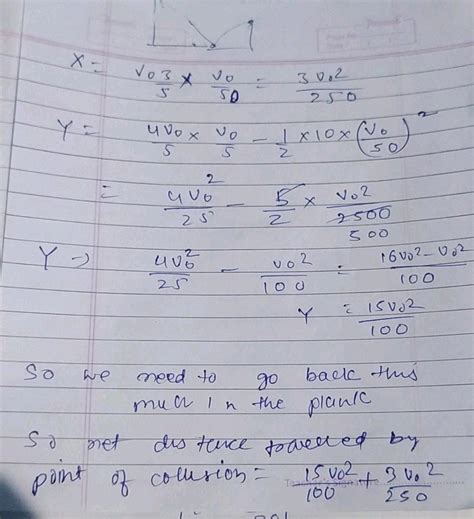 X = V₀3/5 × V₀/50 = 3V₀²/250
Y = 4V₀/5 × V₀/5 - 1/2 × 10 × (V₀/50)²
= 4V₀²/25 - 5/2 × V₀²/2500
500
Y → 4V₀²/25 - V₀²/100 = 16V₀² - V₀²/100
Y = 15V₀²/100
So we need to go back this
much in the plank
So net distance
point of collision = 15V₀²/100 + 3V₀²/250